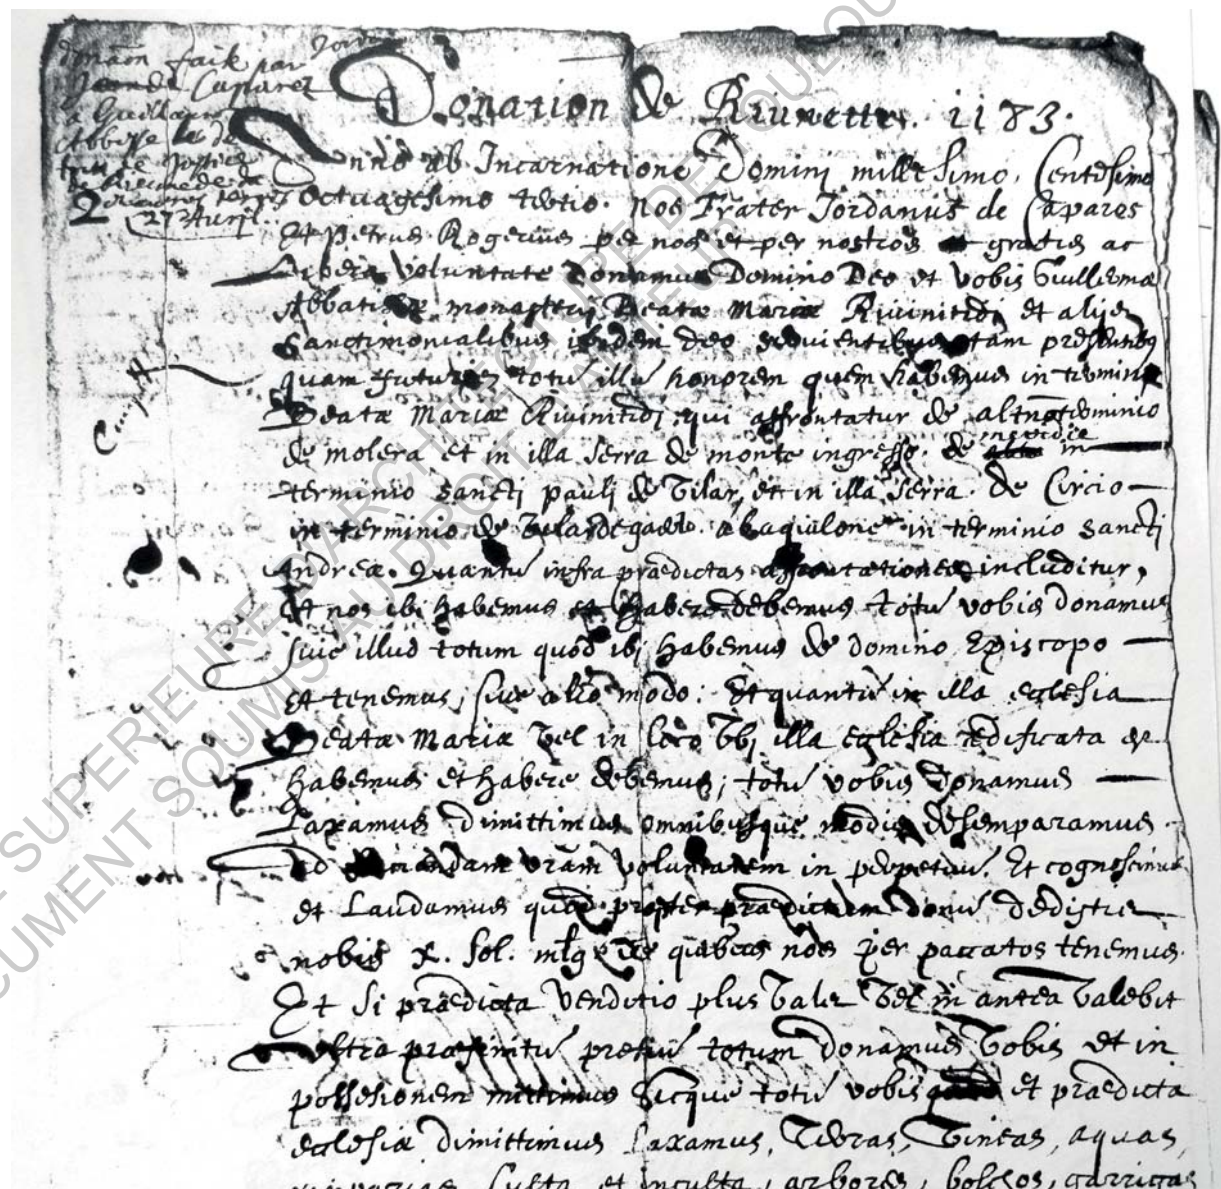 donaõn faite par
Jordan de Caparez
a Guillaume
Abbesse de
27 Avril
Compté
Donation de Riunette. 1183.
Anno ab Incarnatione Domini millesimo, Centesimo
Octuagesimo tertio. nos Frater Jordanus de Capares
Et Petrus Rogerius per nos et per nostros gratis ac
Libera Voluntate donamus Domino Deo et vobis Guillermæ
Abbatissæ monasterij Beatæ Mariæ Riuinitidi et alijs
Sanctimonialibus ibidem deo servientibus tam presentibus
quam futuris totũ illũ honorem quem habemus in terminio
Beatæ Mariæ Riuinitidi, qui affrontatur de altano in terminio
de molera et in illa Serra de monte ingresso. de meridie in
terminio Sancti pauli de Vilar, et in illa Serra. de Circio
in terminio de ab aquilone in terminio Sancti
Andreæ. Quantũ infra prædictas affrontationes includitur,
Et nos ibi habemus et habere debemus totũ vobis donamus
sive illud totum quod ibi habemus de domino Episcopo
et tenemus, sive alio modo. Et quantũ in illa eglesia
Beatæ Mariæ Vel in loco Vbi illa eglesia ædificata est
habemus et habere debemus, totũ vobis donamus
Laxamus dimittimus omnibusque modis desemparamus
ad vr̃am voluntatem in perpetuũ. Et cognoscimus
et Laudamus quod propter prædictum donũ dedistis
nobis X. sol. mlg de quibus nos per paccatos tenemus.
Et Si prædicta venditio plus valet Vel in antea valebit
Vltra præfinitũ pretiũ totum donamus Vobis et in
possesionem mittimus Sicque totũ vobis et prædicta
eglesiæ dimittimus Laxamus, Terras, Vineas, aquas,
Culta et inculta, arbores, boscos, garricas
ECOLE SUPERIEURE D'ARCHITECTURE DE TOULOUSE
DOCUMENT SOUMIS AU DROIT D'AUTEUR